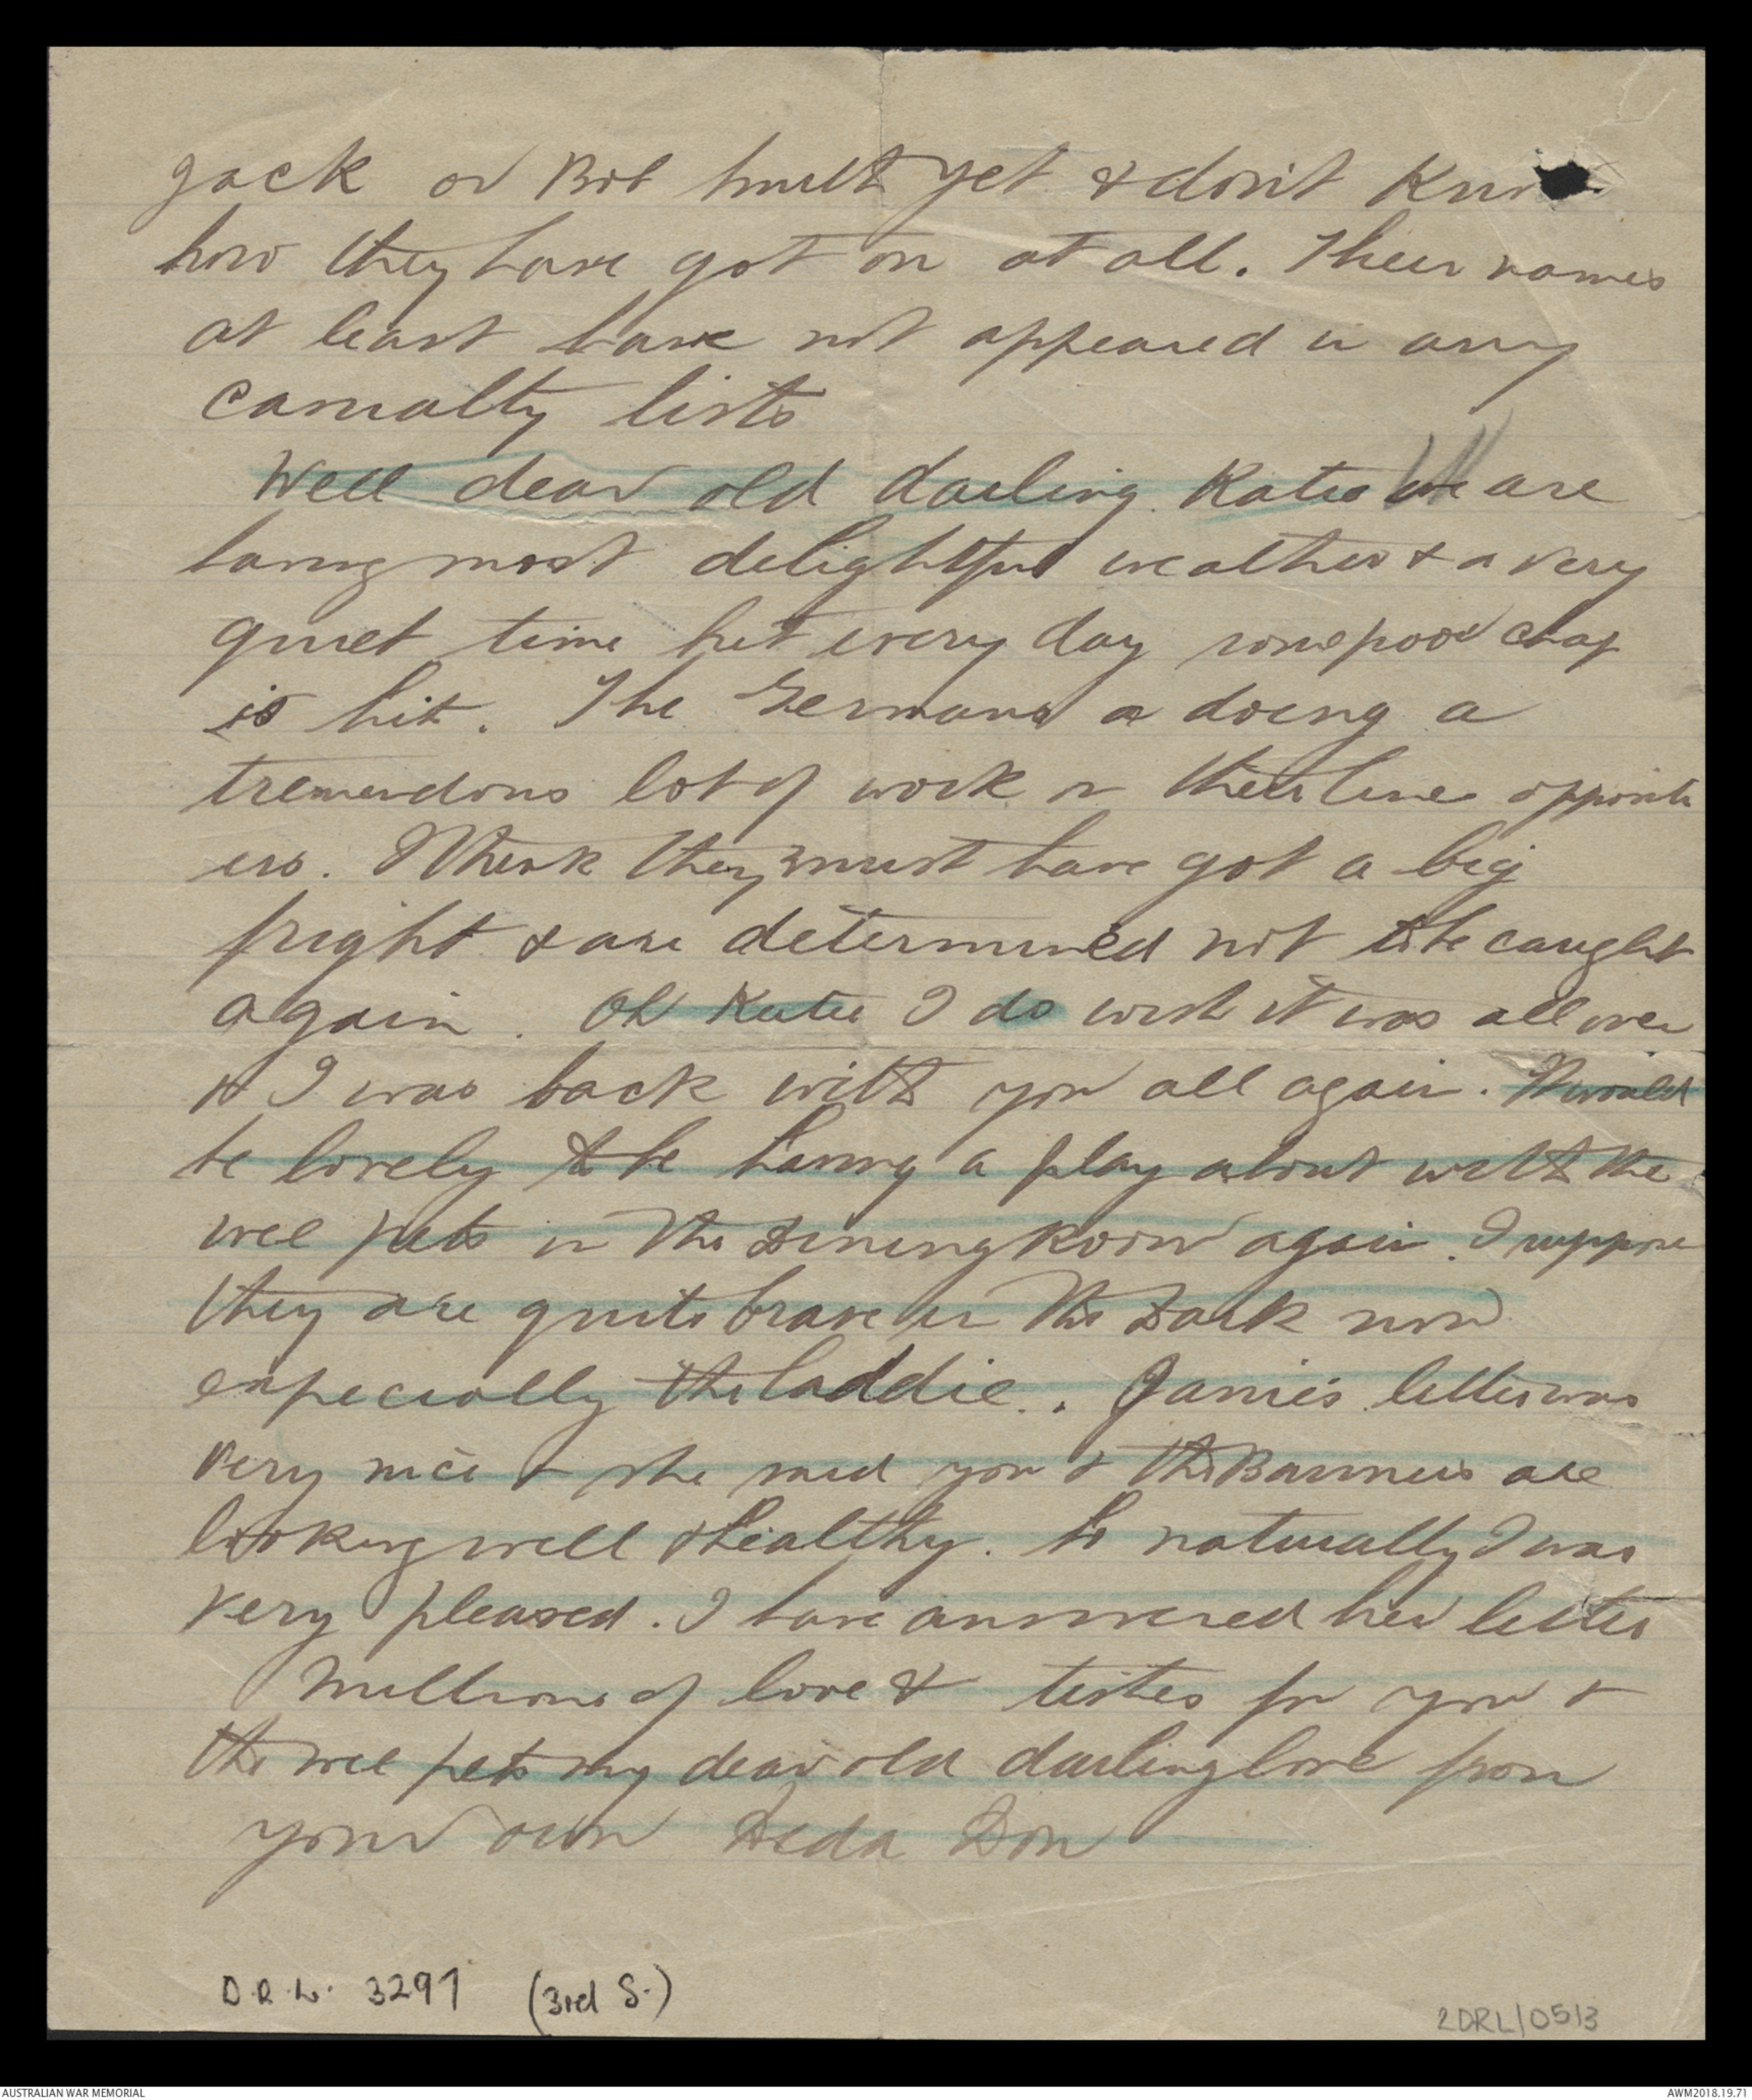 Jack or Bob hurt yet & don't Know
how they have got on at all. Their names
at least have not appeared in any
casualty lists
Well dear old darling Katie We are
having most delightful weather & a very
quiet time but every day some poor chap
is hit. The Germans a doing a
tremendous lot of work on their lines opposite
us. I think they must have got a big
fright & are determined not to be caught
again. Oh Katie I do wish it was all over
& I was back with you all again. It would
be lovely to be having a play about with the
wee pets in the Dining Room again. I suppose
they are quite brave in the Dark now
especially the laddie. Janie's letter was
very nice & she said you & the Bairnies are
looking well & healthy. So naturally I was
very pleased. I have answered her letter
Millions of love & tisties for you &
the wee pets my dear old darling love from
your own Deda Don
D.R.L. 3297 (3rd S.)
2DRL/0513
AUSTRALIAN WAR MEMORIAL
AWM2018.19.71